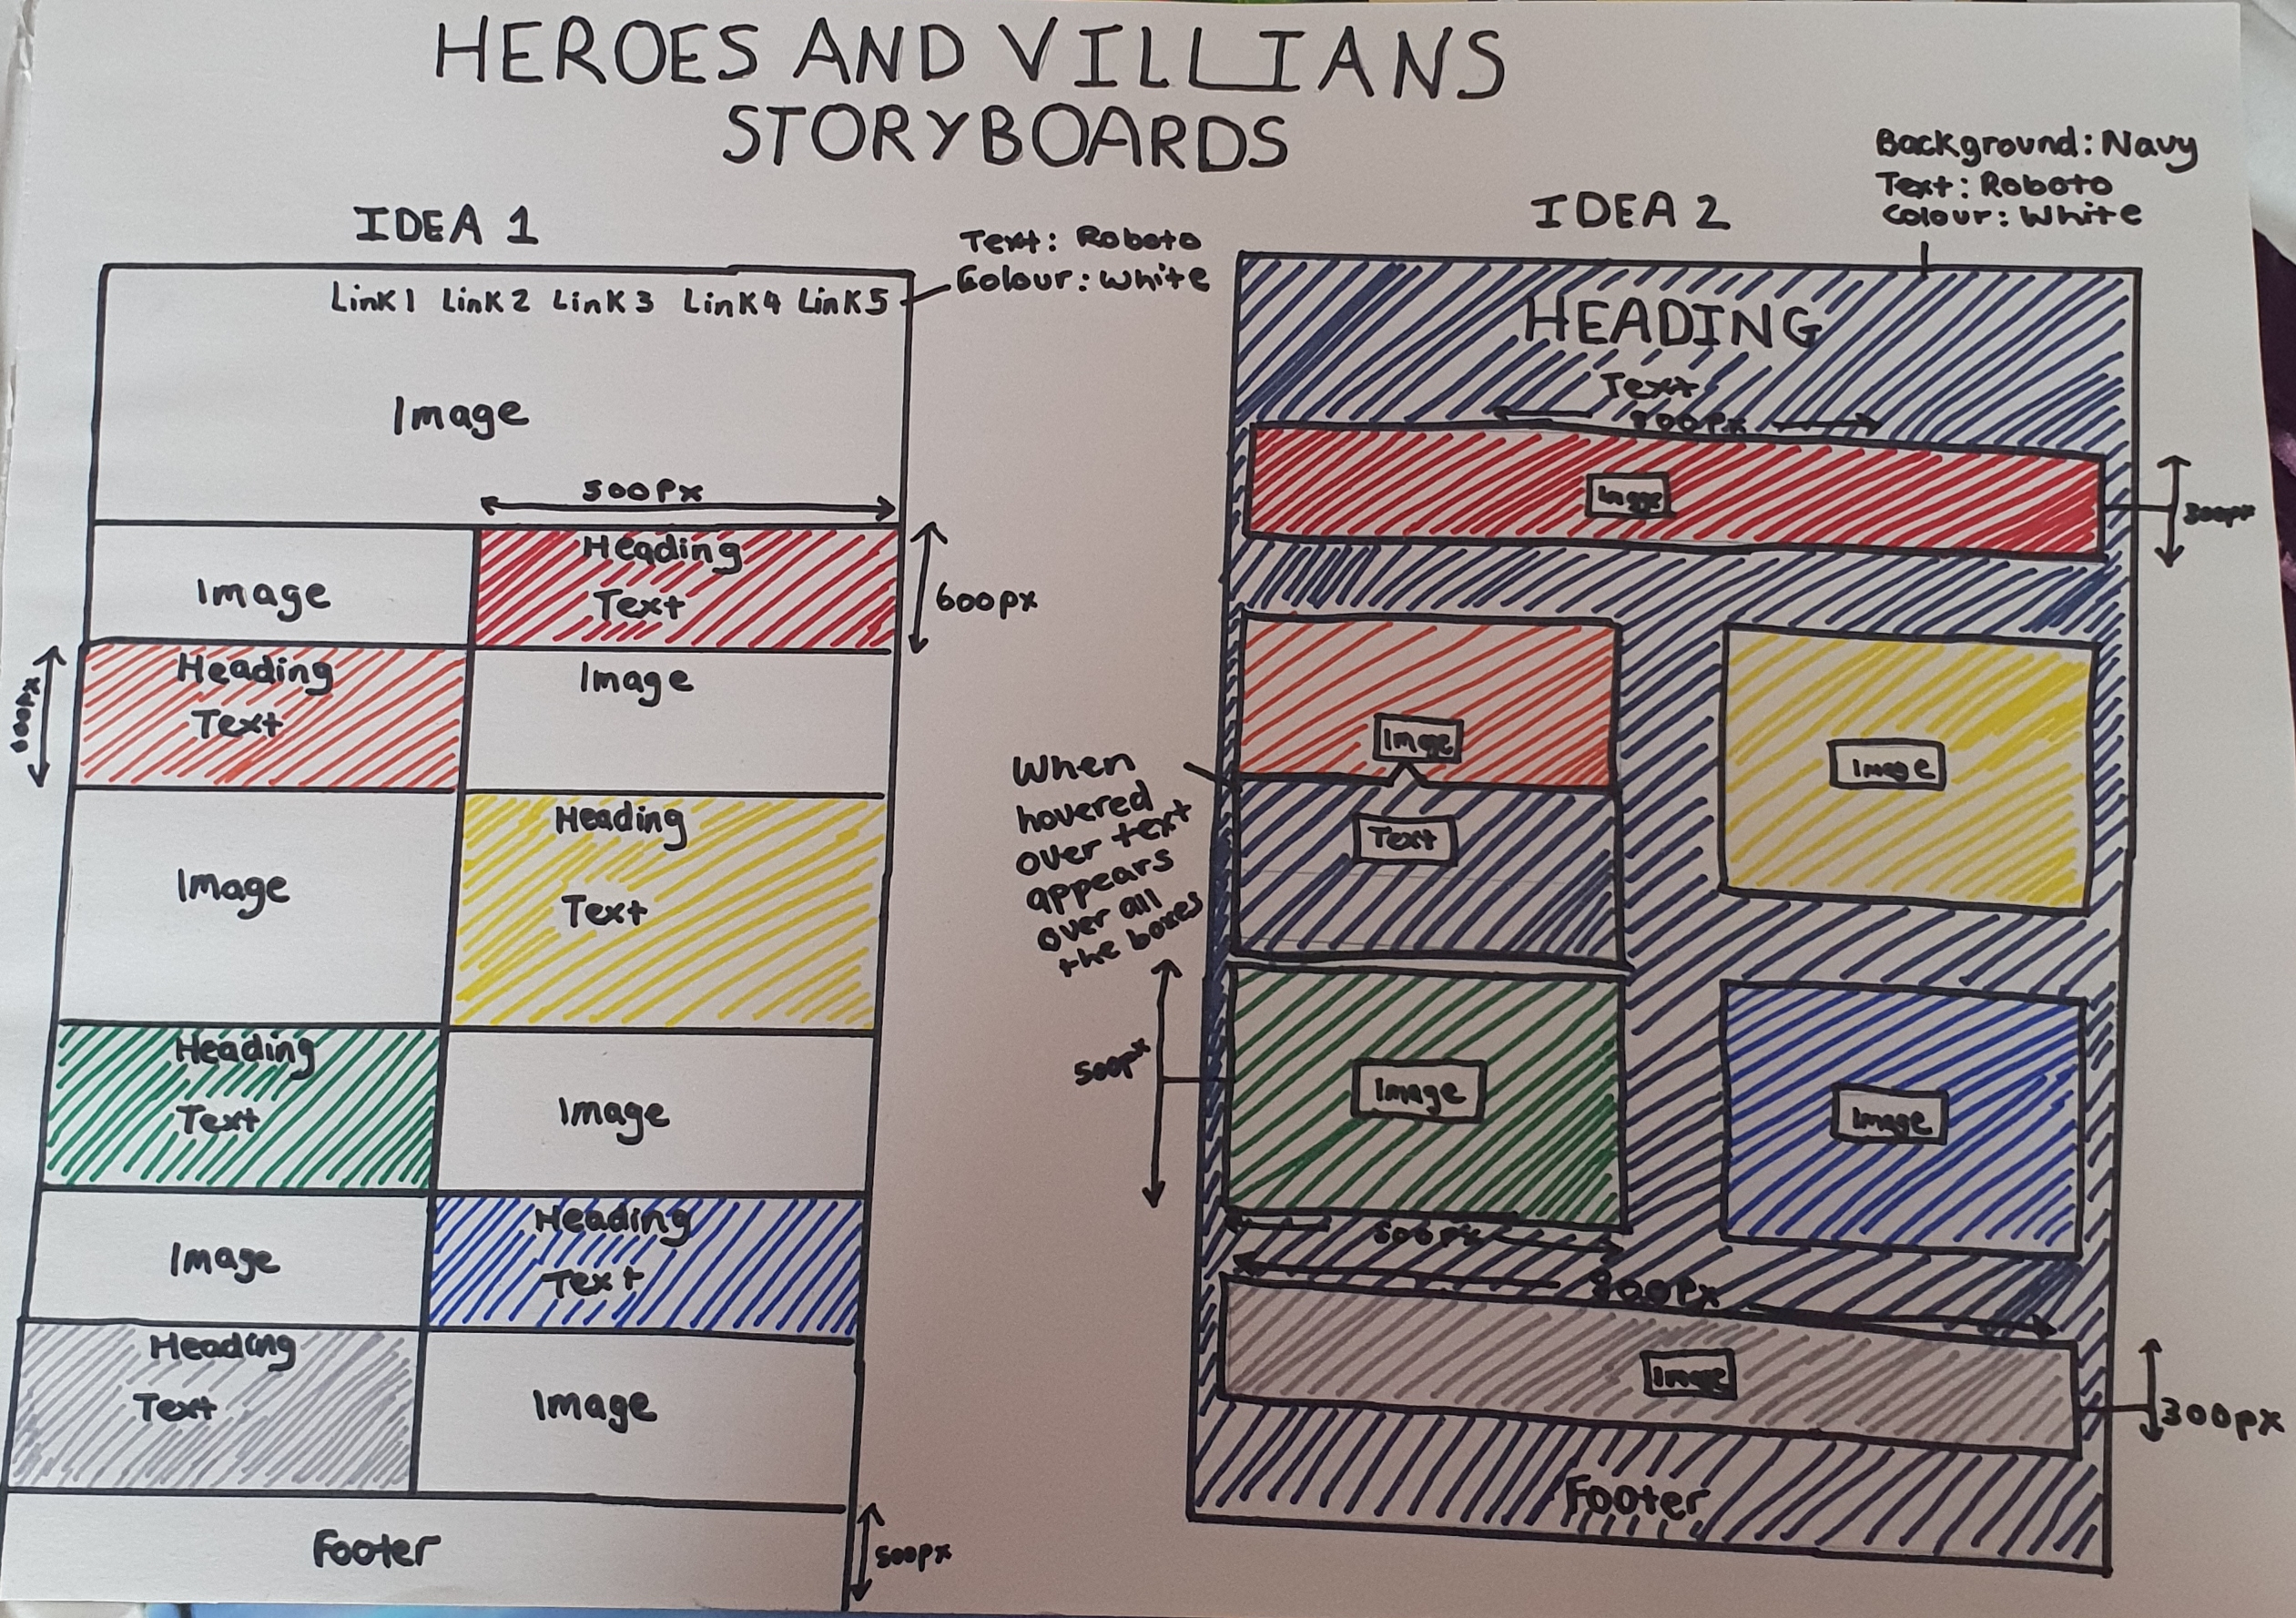 HEROES AND VILLIANS
STORYBOARDS
IDEA 1
Text: Roboto
Colour: White
Link1 Link2 Link3 Link4 Link5
Image
500px
Image
Heading
Text
600px
Heading
Text
600px
Image
Image
Heading
Text
Heading
Text
Image
Image
Heading
Text
Heading
Text
Image
Footer
500px
IDEA 2
Background: Navy
Text: Roboto
Colour: White
HEADING
Text
900px
Image
300px
Image
Image
When
hovered
over text
appears
over all
the boxes
Text
500px
Image
Image
500px
900px
Image
300px
Footer